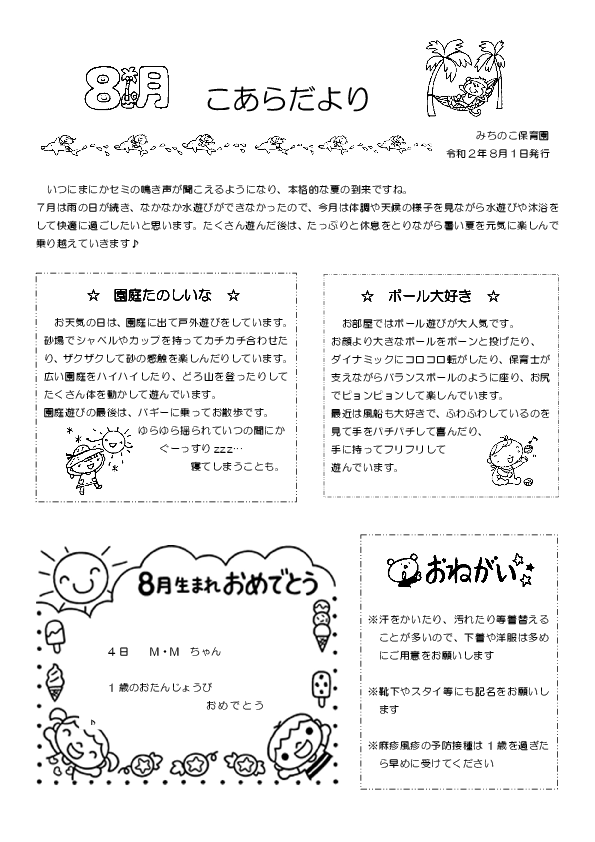 8月
こあらだより
みちのこ保育園
令和2年8月1日発行
いつにまにかセミの鳴き声が聞こえるようになり、本格的な夏の到来ですね。
7月は雨の日が続き、なかなか水遊びができなかったので、今月は体調や天候の様子を見ながら水遊びや沐浴を
して快適に過ごしたいと思います。たくさん遊んだ後は、たっぷりと休息をとりながら暑い夏を元気に楽しんで
乗り越えていきます♪
☆ 園庭たのしいな ☆
お天気の日は、園庭に出て戸外遊びをしています。
砂場でシャベルやカップを持ってカチカチ合わせた
り、ザクザクして砂の感触を楽しんだりしています。
広い園庭をハイハイしたり、どろ山を登ったりして
たくさん体を動かして遊んでいます。
園庭遊びの最後は、バギーに乗ってお散歩です。
ゆらゆら揺られていつの間にか
ぐーっすりzzz…
寝てしまうことも。
☆ ボール大好き ☆
お部屋ではボール遊びが大人気です。
お顔より大きなボールをポーンと投げたり、
ダイナミックにコロコロ転がしたり、保育士が
支えながらバランスボールのように座り、お尻
でピョンピョンして楽しんでいます。
最近は風船も大好きで、ふわふわしているのを
見て手をパチパチして喜んだり、
手に持ってフリフリして
遊んでいます。
8月生まれおめでとう
4日 M・M ちゃん
1歳のおたんじょうび
おめでとう
おねがい
※汗をかいたり、汚れたり等着替える
ことが多いので、下着や洋服は多め
にご用意をお願いします
※靴下やスタイ等にも記名をお願いし
ます
※麻疹風疹の予防接種は1歳を過ぎた
ら早めに受けてください